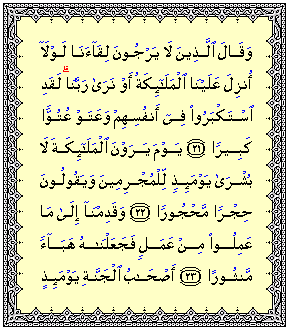 وَقَالَ ٱلَّذِينَ لَا يَرْجُونَ لِقَآءَنَا لَوْلَآ
أُنزِلَ عَلَيْنَا ٱلْمَلَـٰٓئِكَةُ أَوْ نَرَىٰ رَبَّنَا ۗ لَقَدِ
ٱسْتَكْبَرُوا۟ فِىٓ أَنفُسِهِمْ وَعَتَوْ عُتُوًّا
كَبِيرًا ﴿٢١﴾ يَوْمَ يَرَوْنَ ٱلْمَلَـٰٓئِكَةَ لَا
بُشْرَىٰ يَوْمَئِذٍ لِّلْمُجْرِمِينَ وَيَقُولُونَ
حِجْرًا مَّحْجُورًا ﴿٢٢﴾ وَقَدِمْنَآ إِلَىٰ مَا
عَمِلُوا۟ مِنْ عَمَلٍ فَجَعَلْنَـٰهُ هَبَآءً
مَّنثُورًا ﴿٢٣﴾ أَصْحَـٰبُ ٱلْجَنَّةِ يَوْمَئِذٍ